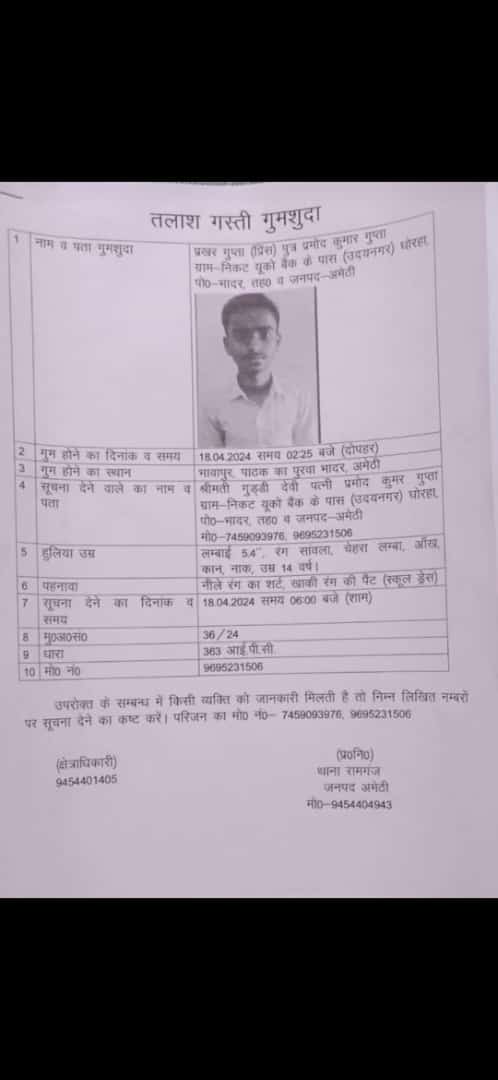 तलाश गस्ती गुमशुदा
1 नाम व पता गुमशुदा प्रखर गुप्ता (प्रिंस) पुत्र प्रमोद कुमार गुप्ता
ग्राम–निकट यूको बैंक के पास (उदयनगर) घोरहा,
पो0–भादर, तह0 व जनपद–अमेठी
2 गुम होने का दिनांक व समय 18.04.2024 समय 02:25 बजे (दोपहर)
3 गुम होने का स्थान भावापुर, पाठक का पुरवा भादर, अमेठी
4 सूचना देने वाले का नाम व श्रीमती गुड्डी देवी पत्नी प्रमोद कुमर गुप्ता
पता ग्राम–निकट यूको बैंक के पास (उदयनगर) घोरहा,
पो0–भादर, तह0 व जनपद–अमेठी
मो0–7459093976, 9695231506
5 हुलिया उम्र लम्बाई 5.4", रंग सावला, चेहरा लम्बा, आँख,
कान, नाक, उम्र 14 वर्ष।
6 पहनावा नीले रंग का शर्ट, खाकी रंग की पैंट (स्कूल ड्रेस)
7 सूचना देने का दिनांक व 18.04.2024 समय 06:00 बजे (शाम)
समय
8 मु0अ0सं0 36/24
9 धारा 363 आई.पी.सी.
10 मो0 नं0 9695231506
उपरोक्त के सम्बन्ध में किसी व्यक्ति को जानकारी मिलती है तो निम्न लिखित नम्बरों
पर सूचना देने का कष्ट करें। परिजन का मो0 नं0– 7459093976, 9695231506
(क्षेत्राधिकारी)
9454401405
(प्र0नि0)
थाना रामगंज
जनपद अमेठी
मो0–9454404943